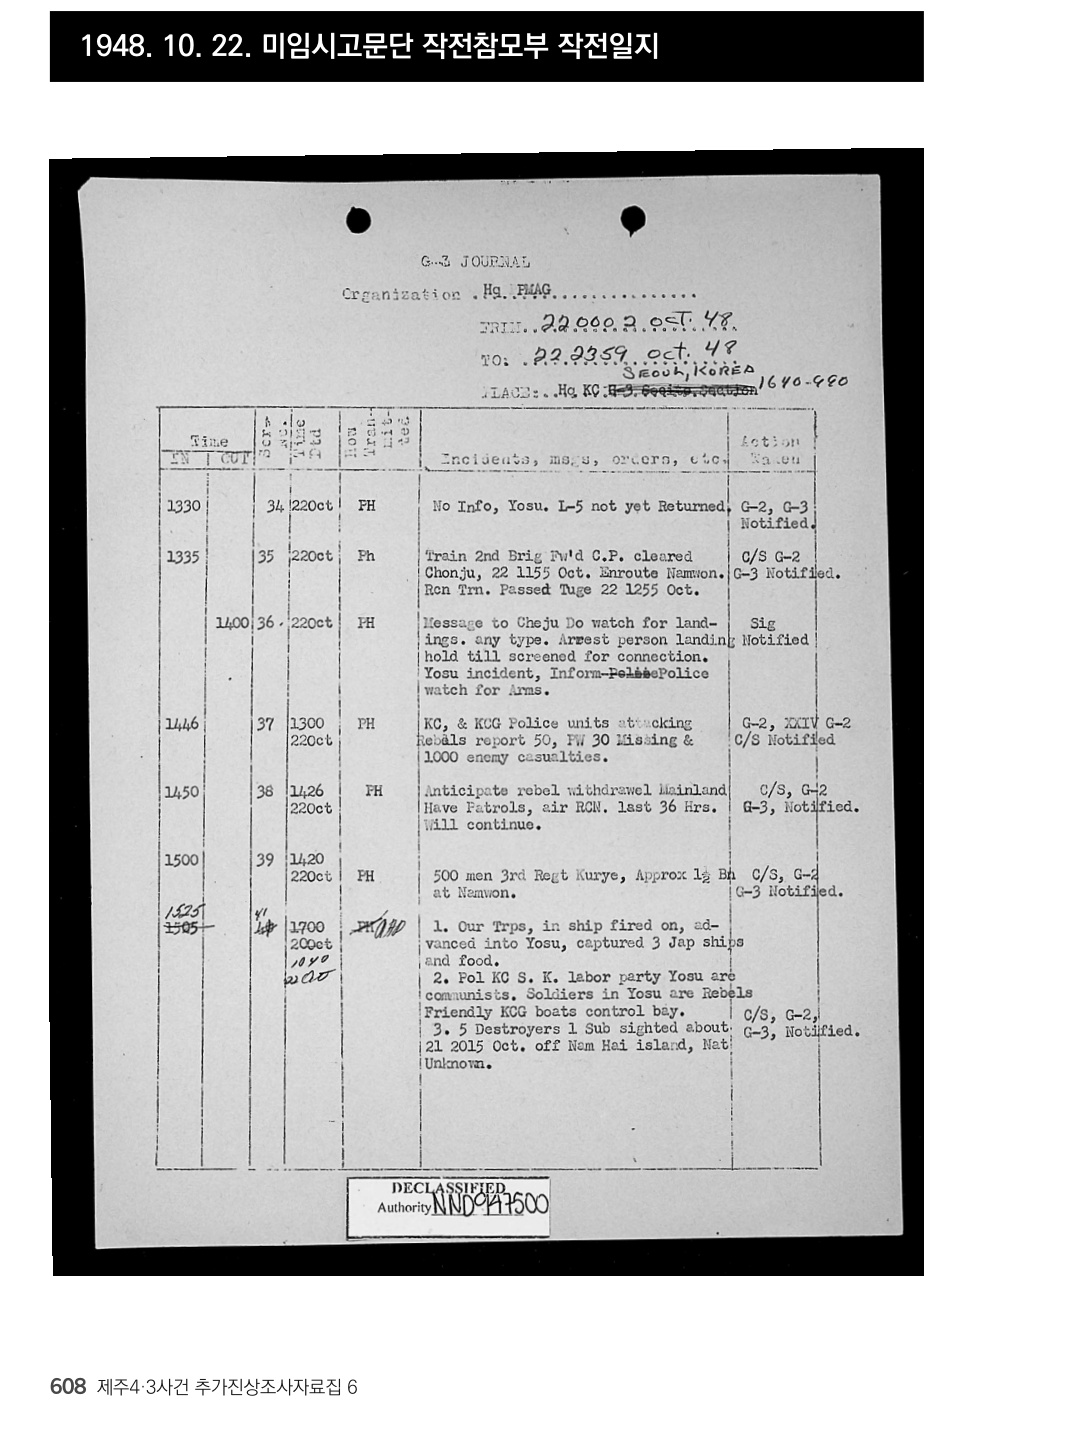 1948. 10. 22. 미임시고문단 작전참모부 작전일지
G-3 JOURNAL
Organization . Hq PMAG
FRIM.. 220002 oct. 48
TO: . 222359 oct. 48
SEOUL, KOREA
PLACE:..Hq KC 1640-990
Time IN OUT Time How Tran- mit- ted Incidents, msgs, orders, etc. Action Taken
1330 34 22Oct PH No Info, Yosu. L-5 not yet Returned. G-2, G-3
Notified.
1335 35 22Oct Ph Train 2nd Brig Fw'd C.P. cleared C/S G-2
Chonju, 22 1155 Oct. Enroute Namwon. G-3 Notified.
Rcn Trn. Passed Tuge 22 1255 Oct.
1400 36 22Oct PH Message to Cheju Do watch for land- Sig
ings. any type. Arrest person landing Notified
hold till screened for connection.
Yosu incident, Inform Police
watch for Arms.
1446 37 1300 PH KC, & KCG Police units attacking G-2, XXIV G-2
22Oct Rebals report 50, PW 30 Missing & C/S Notified
1000 enemy casualties.
1450 38 1426 PH Anticipate rebel withdrawel Mainland C/S, G-2
22Oct Have Patrols, air RCN. last 36 Hrs. G-3, Notified.
Will continue.
1500 39 1420
22Oct PH 500 men 3rd Regt Kurye, Approx 1½ Bn C/S, G-2
at Namwon. G-3 Notified.
1525 41
1505 1700 PH 1. Our Trps, in ship fired on, ad-
20Oct vanced into Yosu, captured 3 Jap ships
1040 and food.
22 Oct 2. Pol KC S. K. labor party Yosu are
communists. Soldiers in Yosu are Rebels
Friendly KCG boats control bay. C/S, G-2,
3. 5 Destroyers 1 Sub sighted about G-3, Notified.
21 2015 Oct. off Nam Hai island, Nat
Unknown.
DECLASSIFIED
Authority NND 947500
608 제주4·3사건 추가진상조사자료집 6